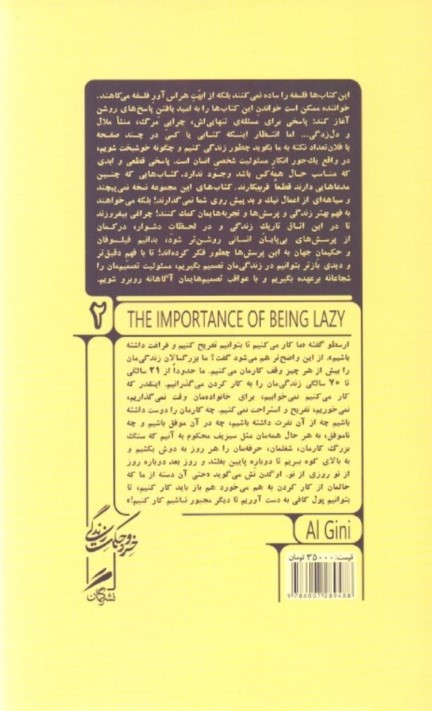 این کتاب‌ها فلسفه را ساده نمی‌کنند بلکه از ابهتِ هراس‌آور فلسفه می‌کاهند.
خواننده ممکن است خواندن این کتاب‌ها را به امید یافتن پاسخ‌های روشن
آغاز کند؛ پاسخی برای مسئله‌ی تنهایی‌اش، چرایی مرگ، منشأ ملال
و دل‌زدگی... اما انتظار اینکه کتابی یا کسی در چند صفحه
با فلان‌تعداد نکته به ما بگوید چطور زندگی کنیم و چگونه خوشبخت شویم،
در واقع یک‌جور انکار مسئولیت شخصی انسان است. پاسخی قطعی و ابدی
که مناسب حال همه‌کس باشد وجود ندارد. کتاب‌هایی که چنین
مدعاهایی دارند قطعاً فریبکارند. کتاب‌های این مجموعه نسخه نمی‌پیچند
و سیاهه‌ای از اعمال نیک و بد پیش روی شما نمی‌گذارند؛ بلکه می‌خواهند
به فهم بهتر زندگی و پرسش‌ها و تجربه‌هایمان کمک کنند؛ چراغی بیفروزند
تا در این اتاق تاریک زندگی و در لحظات دشوار، درکمان
از پرسش‌های بی‌پایان انسانی روشن‌تر شود، بدانیم فیلسوفان
و حکیمان جهان به این پرسش‌ها چطور فکر کرده‌اند؛ تا با فهم دقیق‌تر
و دیدی بازتر بتوانیم در زندگی‌مان تصمیم بگیریم، مسئولیت تصمیم‌مان را
شجاعانه برعهده بگیریم و با عواقب تصمیم‌هایمان آگاهانه روبرو شویم.
۲
THE IMPORTANCE OF BEING LAZY
ارسطو گفته «ما کار می‌کنیم تا بتوانیم تفریح کنیم و فراغت داشته
باشیم». از این واضح‌تر هم می‌شود گفت؟ ما بزرگسالان زندگی‌مان
را بیش از هر چیز وقف کارمان می‌کنیم. ما حدوداً از ۲۱ سالگی
تا ۷۰ سالگی زندگی‌مان را به کار کردن می‌گذرانیم. اینقدر که
کار می‌کنیم نمی‌خوابیم، برای خانواده‌مان وقت نمی‌گذاریم،
نمی‌خوریم، تفریح و استراحت نمی‌کنیم. چه کارمان را دوست داشته
باشیم چه از آن نفرت داشته باشیم، چه در آن موفق باشیم و چه
ناموفق، به هر حال همه‌مان مثل سیزیف محکوم به آنیم که سنگ
بزرگ کارمان، شغلمان، حرفه‌مان را هر روز به دوش بکشیم و
به بالای کوه ببریم تا دوباره پایین بغلتد و روز بعد دوباره روز
از نو روزی از نو. اوگدن نش می‌گوید «حتی آن دسته از ما که
حالمان از کار کردن به هم می‌خورد هم باز باید کار کنیم، تا
بتوانیم پول کافی به دست آوریم تا دیگر مجبور نباشیم کار کنیم!»
Al Gini
قیمت: ۳۵۰۰۰ تومان
9786007089488
خرد و حکمت زندگی
نشر گمان